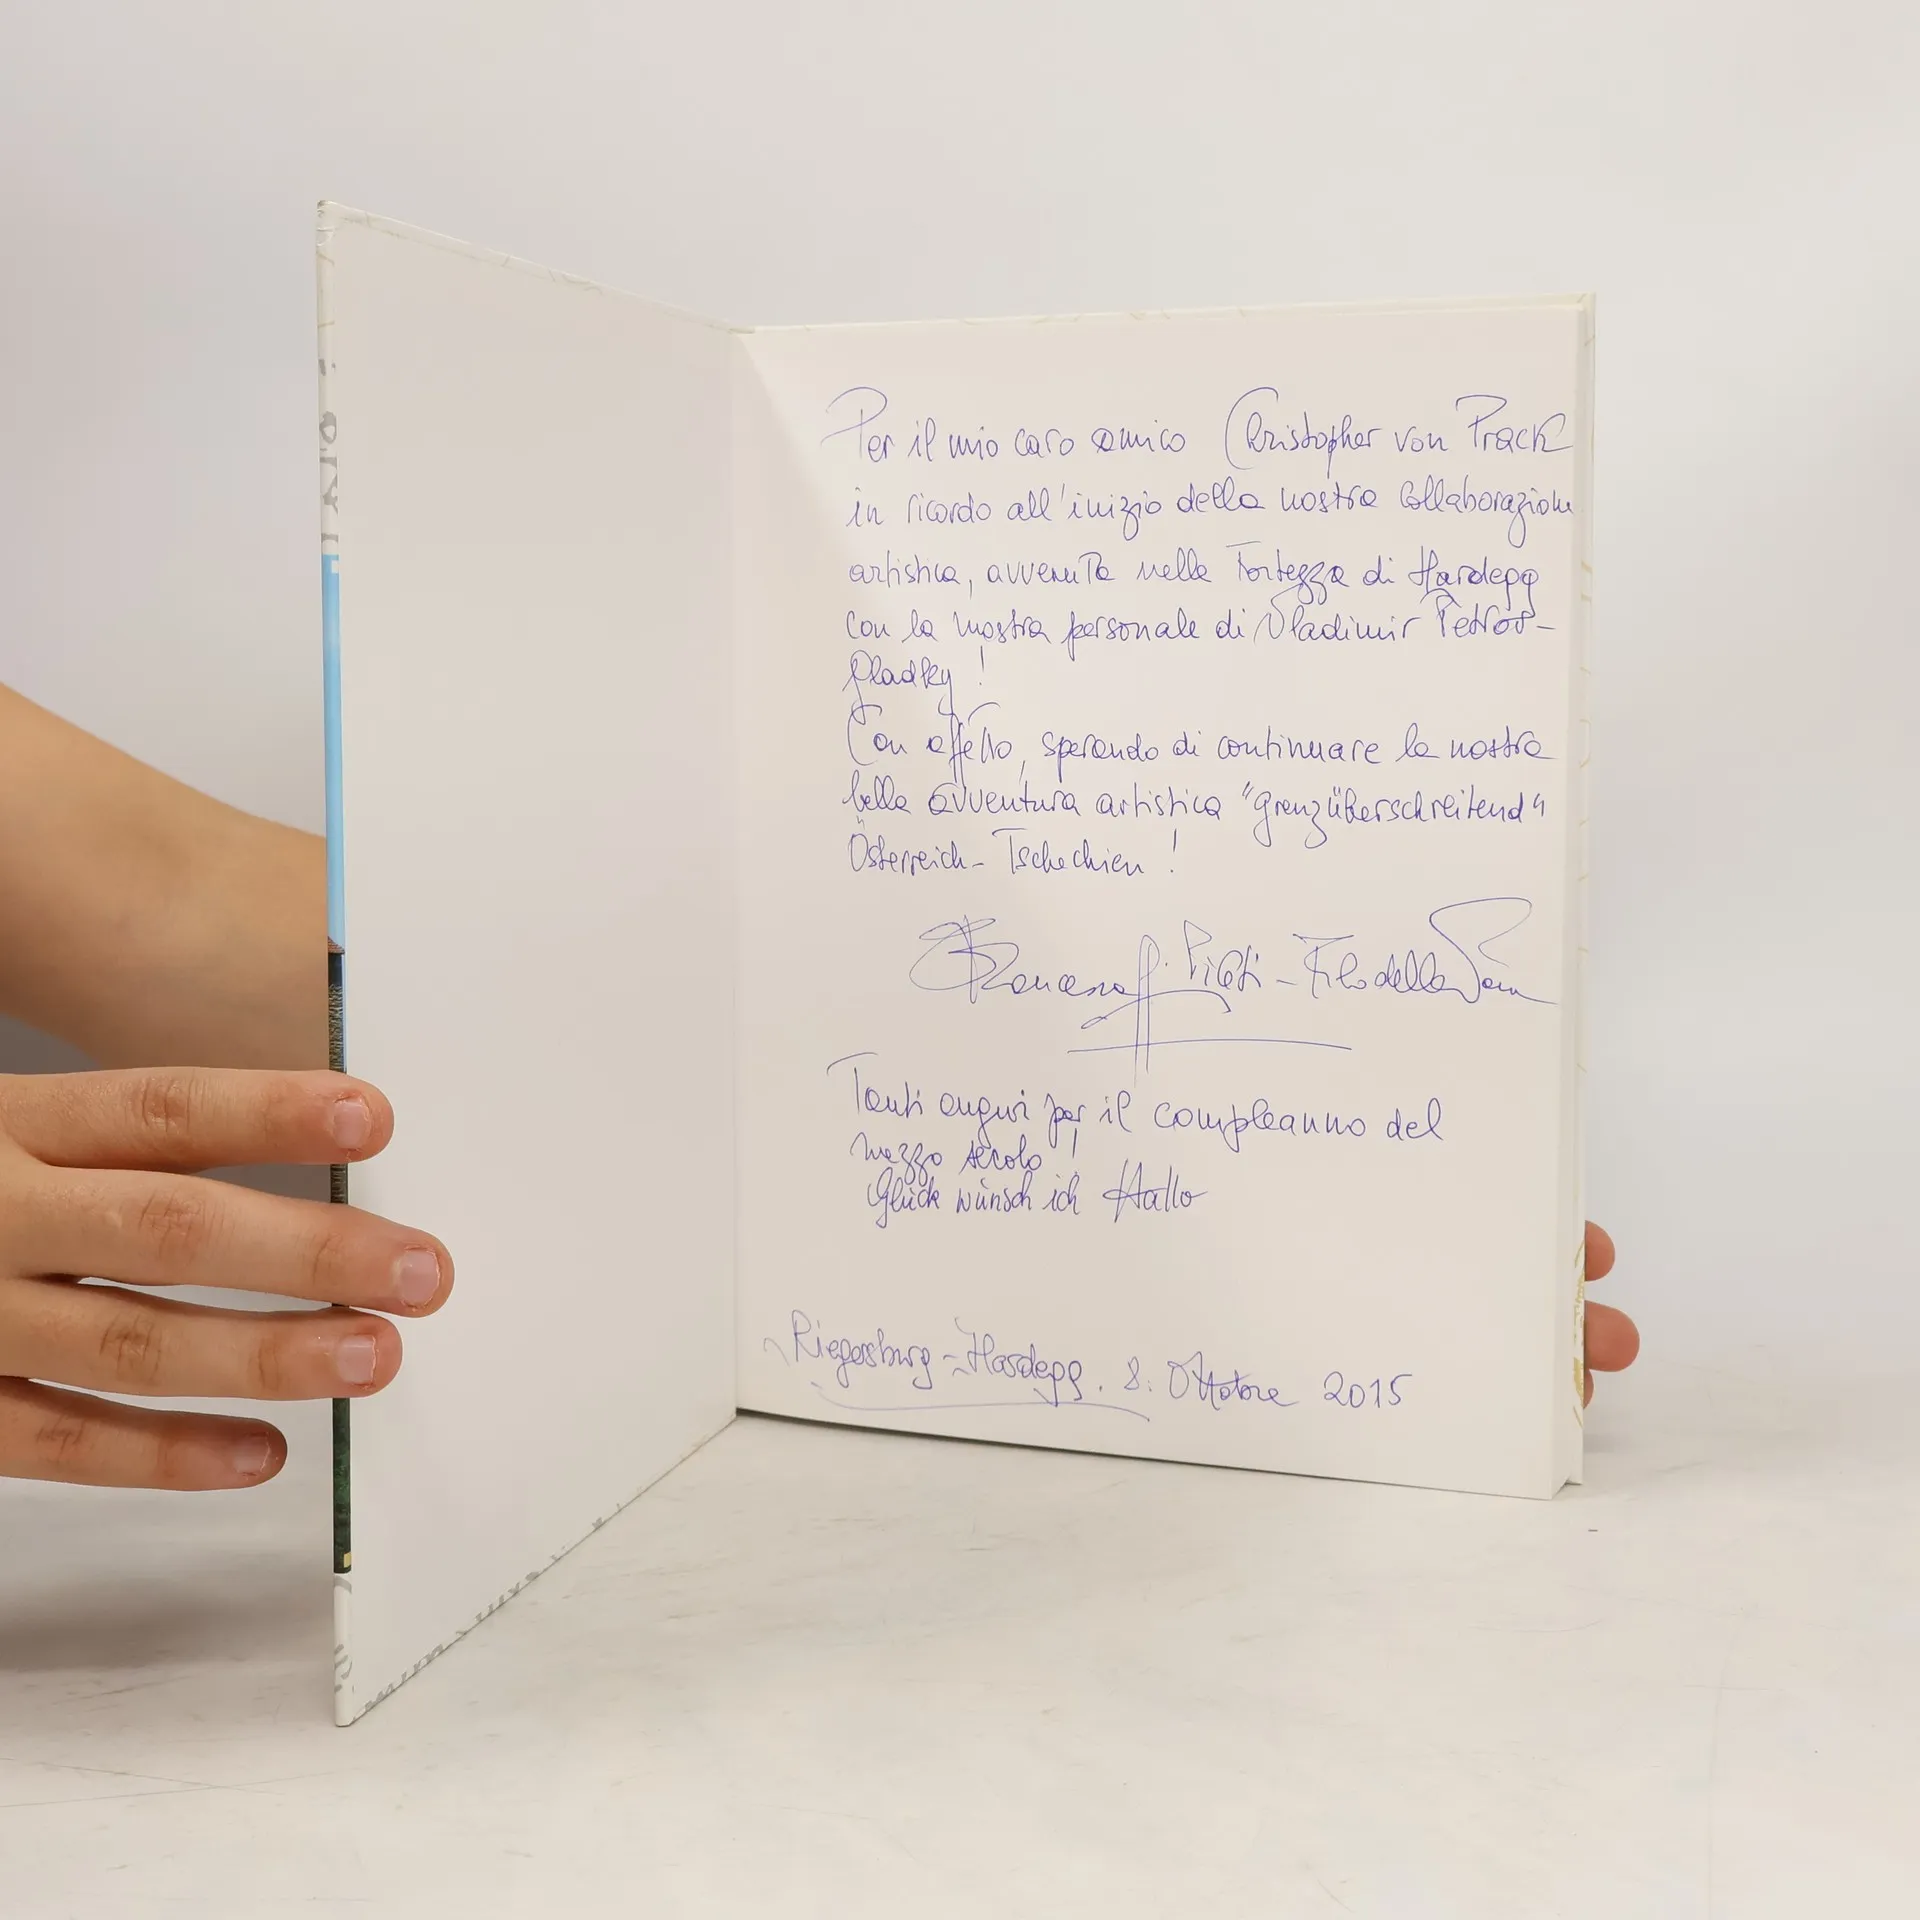 Per il mio caro amico Christopher von Prack
in ricordo all'inizio della nostra collaborazione
artistica, avvenuta nella Fortezza di Hardegg
con la mostra personale di Vladimir Petrov-
Gladky!
Con affetto, sperando di continuare la nostra
bella avventura artistica "grenzüberschreitend"
Österreich - Tschechien!
Tanti auguri per il compleanno del
mezzo secolo!
Glück wünsch ich
Riegersburg - Hardegg. 8. Ottobre 2015